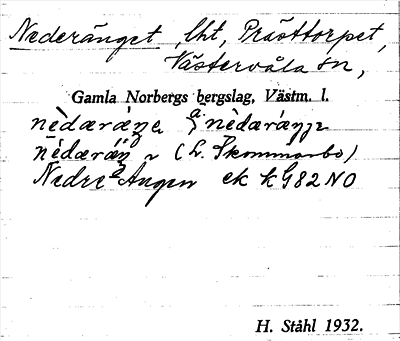 Nederänget, lht, Prästtorpet,
Västervåla sn,
Gamla Norbergs bergslag, Västm. l.
nèdæræ̀ŋe nèdærǽŋɲ
nèdæræ̀ŋ (L. Skommarbo)
Nedre Ängen ek k G82 NO
H. Ståhl 1932.